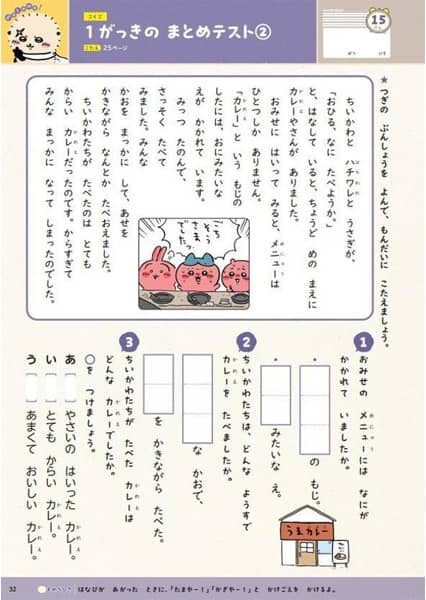 クイズ
1がっきの まとめテスト②
こたえ 25ページ
15
★つぎの ぶんしょうを よんで、もんだいに こたえましょう。
ちいかわと ハチワレと うさぎが、
「おひる、なに たべようか。」
と、はなして いると、ちょうど めの まえに
カレーやさんが ありました。
おみせに はいって みると、メニューは
ひとつしか ありません。
「カレー」と いう もじの
したには、おにみたいな
えが かかれて います。
みっつ たのんで、
さっそく たべて
みました。みんな
かおを まっかに して、あせを
かきながら なんとか たべおえました。
ちいかわたちが たべたのは とても
からい カレーだったのです。からすぎて
みんな まっかに なって しまったのでした。
ごち
そう
さま
でした。
1 おみせの メニューには なにが
かかれて いましたか。
・ の もじ。
・ みたいな え。
2 ちいかわたちは、どんな ようすで
カレーを たべましたか。
な かおで、
を かきながら たべた。
3 ちいかわたちが たべた カレーは
どんな カレーでしたか。
○を つけましょう。
あ やさいの はいった カレー。
い とても からい カレー。
う あまくて おいしい カレー。
うまカレー
32
はなびが あがった ときに、「たまやー!」「かぎやー!」と かけごえを かけるよ。